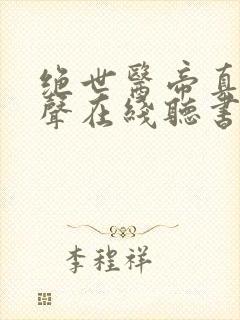 绝世醫帝真
聲在綫聽書
李程祥